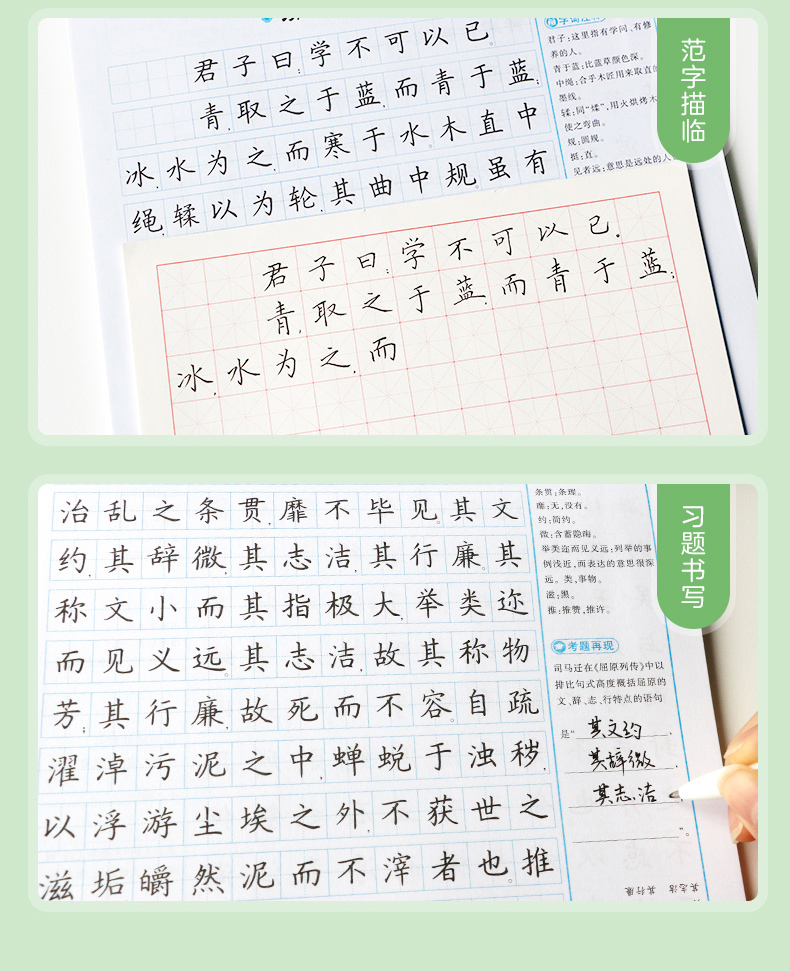 范字描临
君子曰:学不可以已。
青,取之于蓝,而青于蓝;
冰,水为之,而寒于水。木直中
绳,𫐓以为轮,其曲中规。虽有
君子:这里指有学问、有修
养的人。
青于蓝:比蓝草颜色深。
中绳:合乎木匠用来取直的
墨线。
𫐓:同“煣”,用火烘烤木
使之弯曲。
规:圆规。
挺:直。
见者远:意思是远处的人
君子曰:学不可以已。
青,取之于蓝,而青于蓝;
冰,水为之,而
习题书写
治乱之条贯,靡不毕见。其文
约,其辞微,其志洁,其行廉。其
称文小而其指极大,举类迩
而见义远。其志洁,故其称物
芳;其行廉,故死而不容。自疏
濯淖污泥之中,蝉蜕于浊秽,
以浮游尘埃之外,不获世之
滋垢,皭然泥而不滓者也。推
条贯:条理。
靡:无,没有。
约:简约。
微:含蓄隐晦。
举类迩而见义远:列举的事
例浅近,而表达的意思很深
远。类,事物。
滋:黑。
推:推赞,推许。
考题再现
司马迁在《屈原列传》中以
排比句式高度概括屈原的
文、辞、志、行特点的语句
是“其文约,
其辞微,
其志洁,
”。